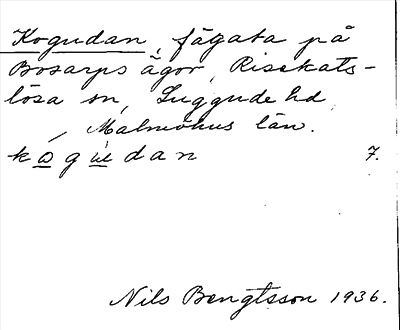 Kogudan, fägata på
Bosarps ägor, Risekats-
lösa sn, Luggude hd,
Malmöhus län.
kogudan 7.
Nils Bengtsson 1936.